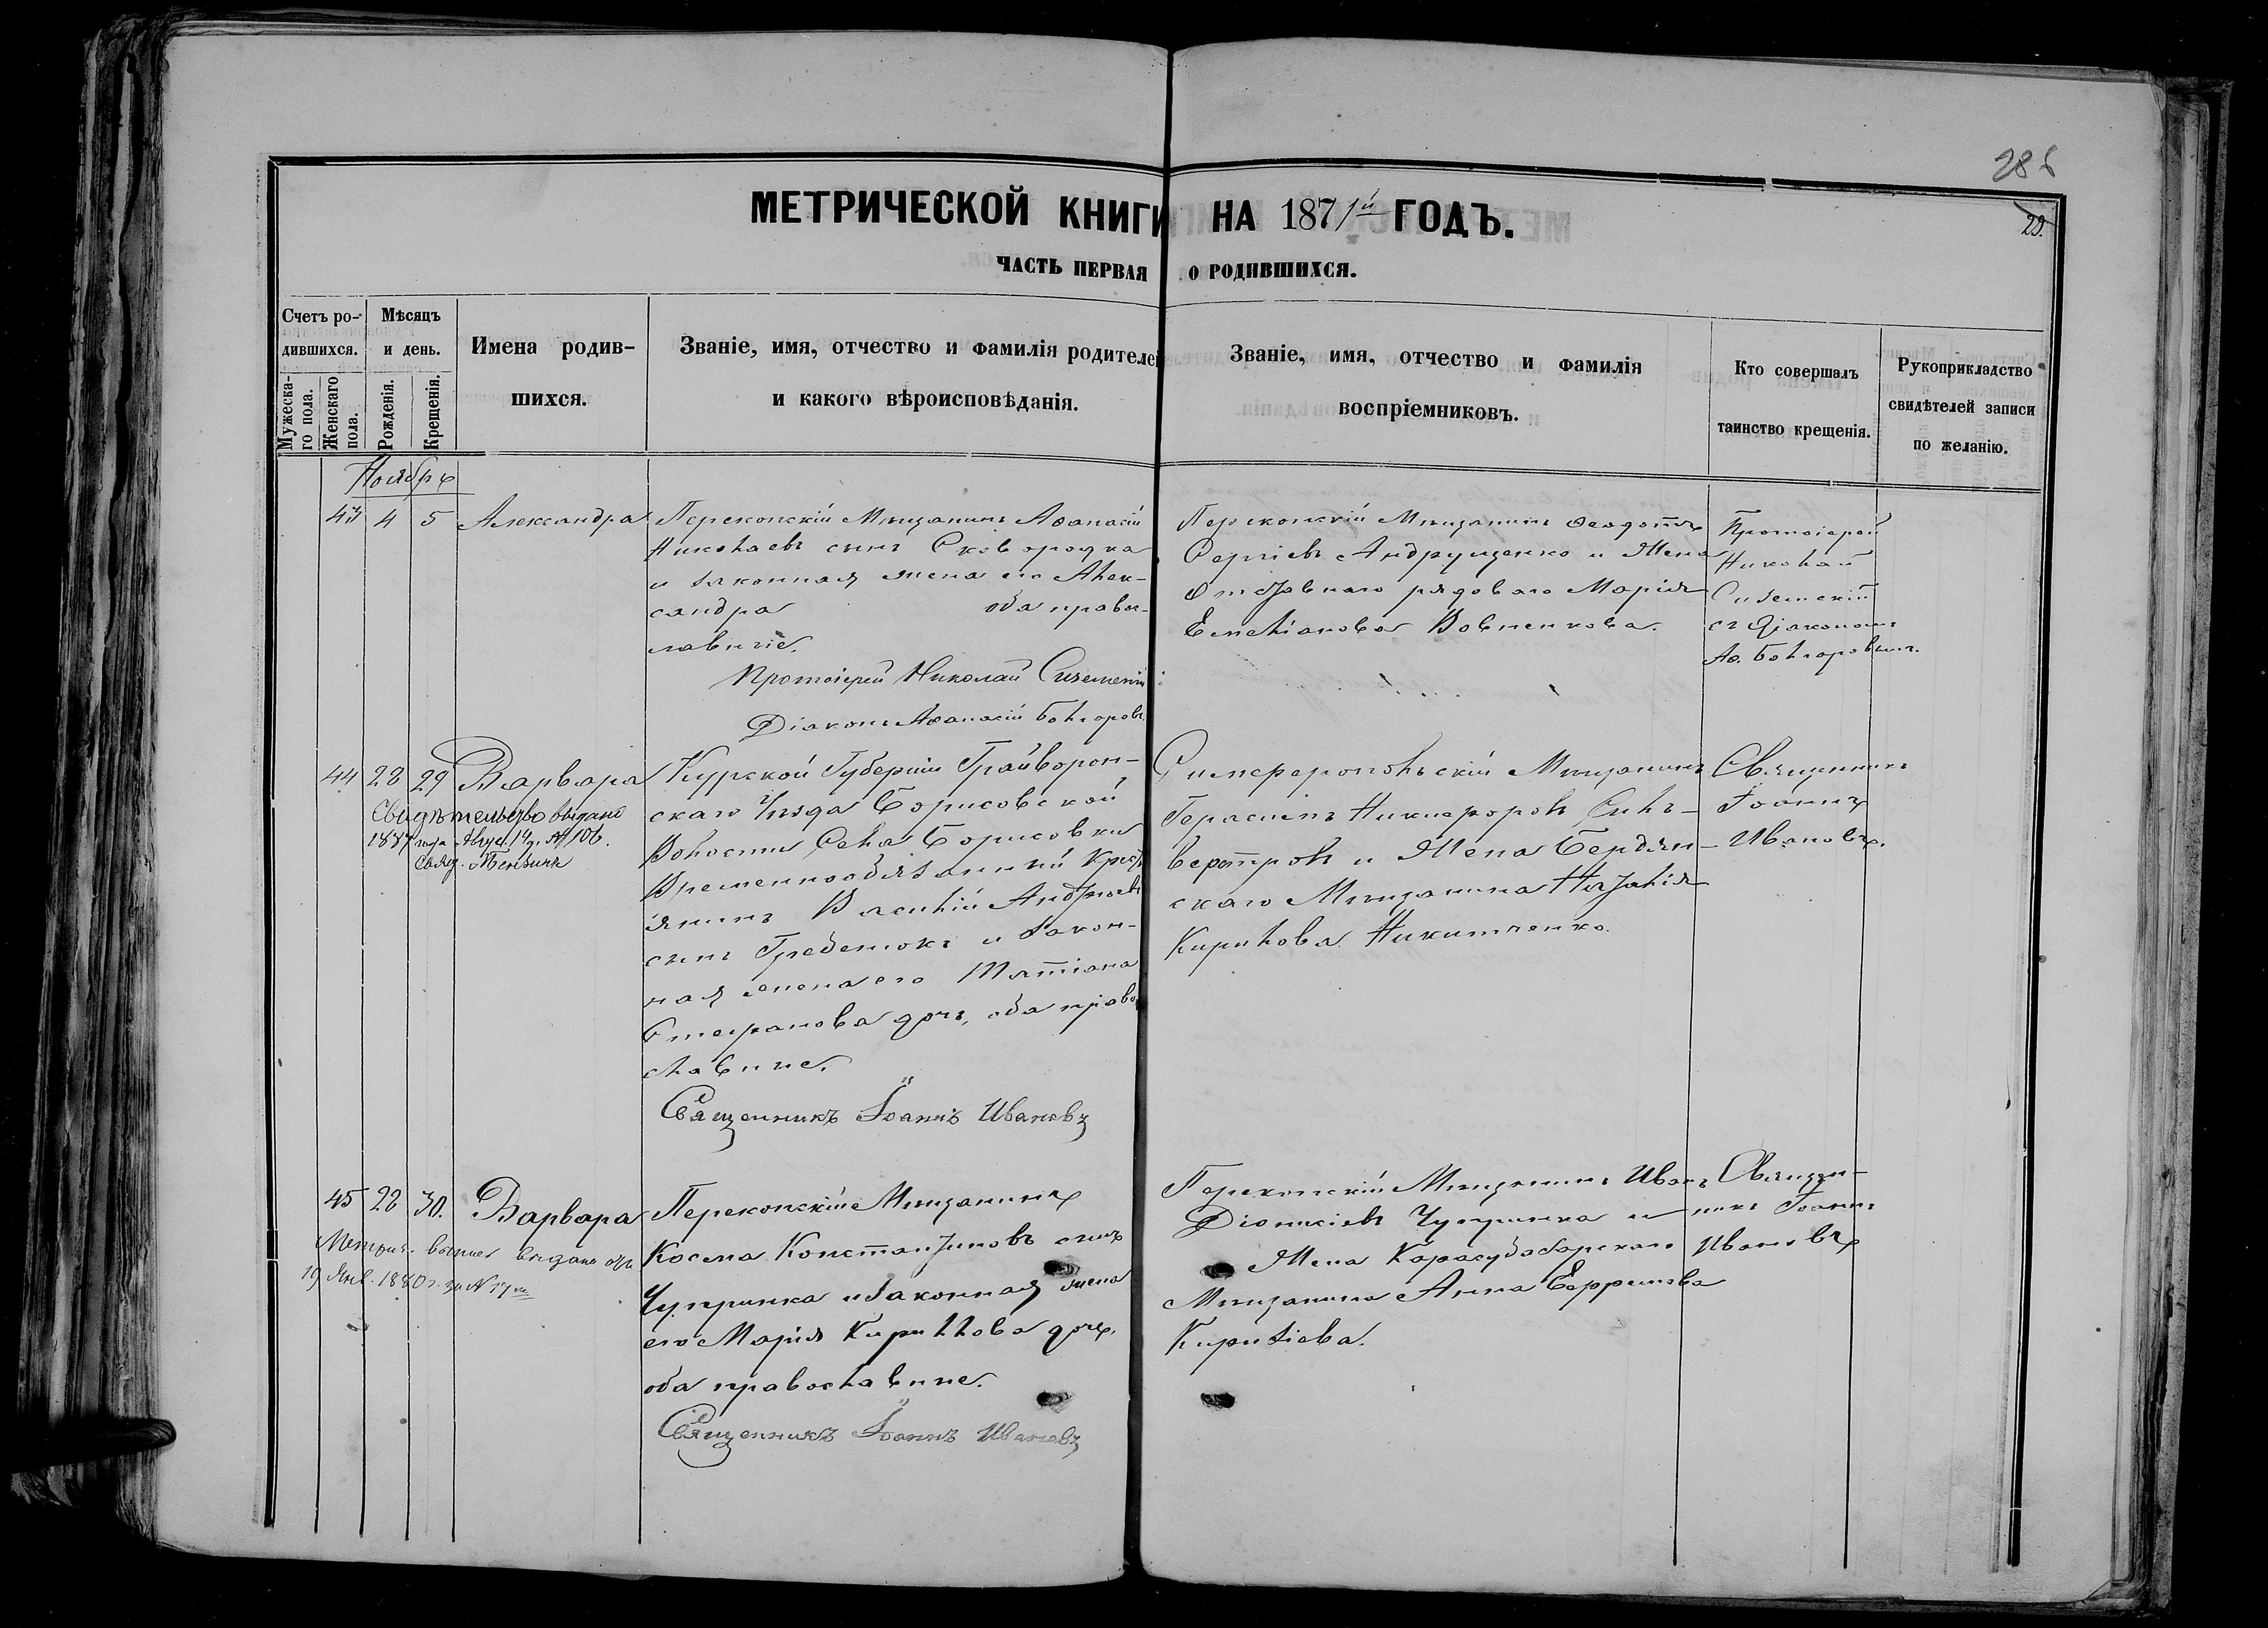 286
МЕТРИЧЕСКОЙ КНИГИ НА 1871й ГОДЪ.
29.
ЧАСТЬ ПЕРВАЯ О РОДИВШИХСЯ.
Счетъ ро-
дившихся.
Мужеска-
го пола.
Женскаго
пола.
Мѣсяцъ
и день.
Рожденія.
Крещенія.
Имена родив-
шихся.
Званіе, имя, отчество и фамилія родителей
и какого вѣроисповѣданія.
Званіе, имя, отчество и фамилія
воспріемниковъ.
Кто совершалъ
таинство крещенія.
Рукоприкладство
свидѣтелей записи
по желанію.
Ноябрь
43 4 5 Александра
Перекопскій Мѣщанинъ Аѳанасій
Николаевъ сынъ Сковородка
и законная жена его Алек-
сандра оба право-
славные.
Протоіерей Николай
Діаконъ АѳанасійБолгаровъ
Перекопскій Мѣщанинъ Ѳеодотъ
Сергіевъ Андрущенко и Жена
Отставнаго рядоваго Марія
Емеліанова Вовненкова.
Протоіерей
Николай
съ Діакономъ
Аѳ. Болгаровымъ.
44 28 29 Варвара
Свидѣтельство выдано
1887 года Авгус. 14 д. № 106.
Свящ.
Курской Губерніи Грайворон-
скаго Уѣзда Борисовской
Волости Села Борисовки
Временнообязанный Крест
янинъ Василій Андреевъ
сынъ Гребенюкъ и закон-
ная жена его Татіана
Стефанова дочь, оба право
славные.
Священникъ Іоаннъ Ивановъ
Симферопольскій Мѣщанинъ
Герасимъ Никифоровъ Силь-
верстровъ и Жена Бердян-
скаго Мѣщанина Наталія
Кирилова Никитченко.
Священникъ
Іоаннъ
Ивановъ.
45 28 30. Варвара
Метрич. выпись выдана
19 Янв. 1880 г. за №
Перекопскій Мѣщанинъ
Косма Константиновъ сынъ
Чупринка и законная жена
его Марія Кириллова дочь,
оба православные.
Священникъ Іоаннъ Ивановъ
Перекопскій Мѣщанинъ Иванъ
Діонисіевъ Чупринка и
Жена Карасубазарскаго
Мѣщанина Анна Ефримова
Киризіева.
Священ-
никъ Іоаннъ
Ивановъ